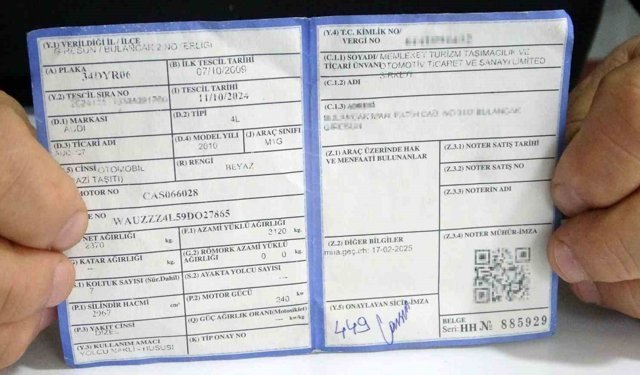 (Y.1) VERİLDİĞİ İL / İLÇE
GİRESUN / BULANCAK 2.NOTERLİĞİ
(A) PLAKA
34DYR06
(B) İLK TESCİL TARİHİ
07/10/2009
(Y.2) TESCİL SIRA NO
(I) TESCİL TARİHİ
11/10/2024
(D.1) MARKASI
AUDI
(D.2) TİPİ
4L
(D.3) TİCARİ ADI
(D.4) MODEL YILI
2010
(J) ARAÇ SINIFI
M1G
CİNSİ OTOMOBİL
(ARAZİ TAŞITI)
(R) RENGİ
BEYAZ
MOTOR NO
CAS066028
WAUZZZ4L59DO27865
NET AĞIRLIĞI
2370 kg.
(F.1) AZAMİ YÜKLÜ AĞIRLIĞI
3120 kg.
(G) KATAR AĞIRLIĞI
(G.2) RÖMORK AZAMİ YÜKLÜ AĞIRLIĞI
0 0
(S.1) KOLTUK SAYISI (Sür.Dahil)
7
(S.2) AYAKTA YOLCU SAYISI
(P.1) SİLİNDİR HACMİ
2967 cm³
(P.2) MOTOR GÜCÜ
240 kw
(P.3) YAKIT CİNSİ
DİZEL
(Q) GÜÇ AĞIRLIK ORANI (Motosiklet)
kw/kg
(Y.3) KULLANIM AMACI
YOLCU NAKLİ - HUSUSİ
(K) TİP ONAY NO
(Y.4) T.C. KİMLİK NO/
VERGİ NO
(C.1.1) SOYADI/
TİCARİ ÜNVANI
MEMLEKET TURİZM TAŞIMACILIK VE
OTOMOTİV TİCARET VE SANAYİ LİMİTED
ŞİRKETİ
(C.1.2) ADI
(C.1.3) ADRESİ
(Z.1) ARAÇ ÜZERİNDE HAK
VE MENFAATİ BULUNANLAR
(Z.3.1) NOTER SATIŞ TARİHİ
(Z.3.2) NOTER SATIŞ NO
(Z.3.3) NOTERİN ADI
(Z.2) DİĞER BİLGİLER
mua.geç.th: 17-02-2025
(Z.3.4) NOTER MÜHÜR-İMZA
(Y.5) ONAYLAYAN SİCİL-İMZA
449
BELGE
Seri: HH № 885929